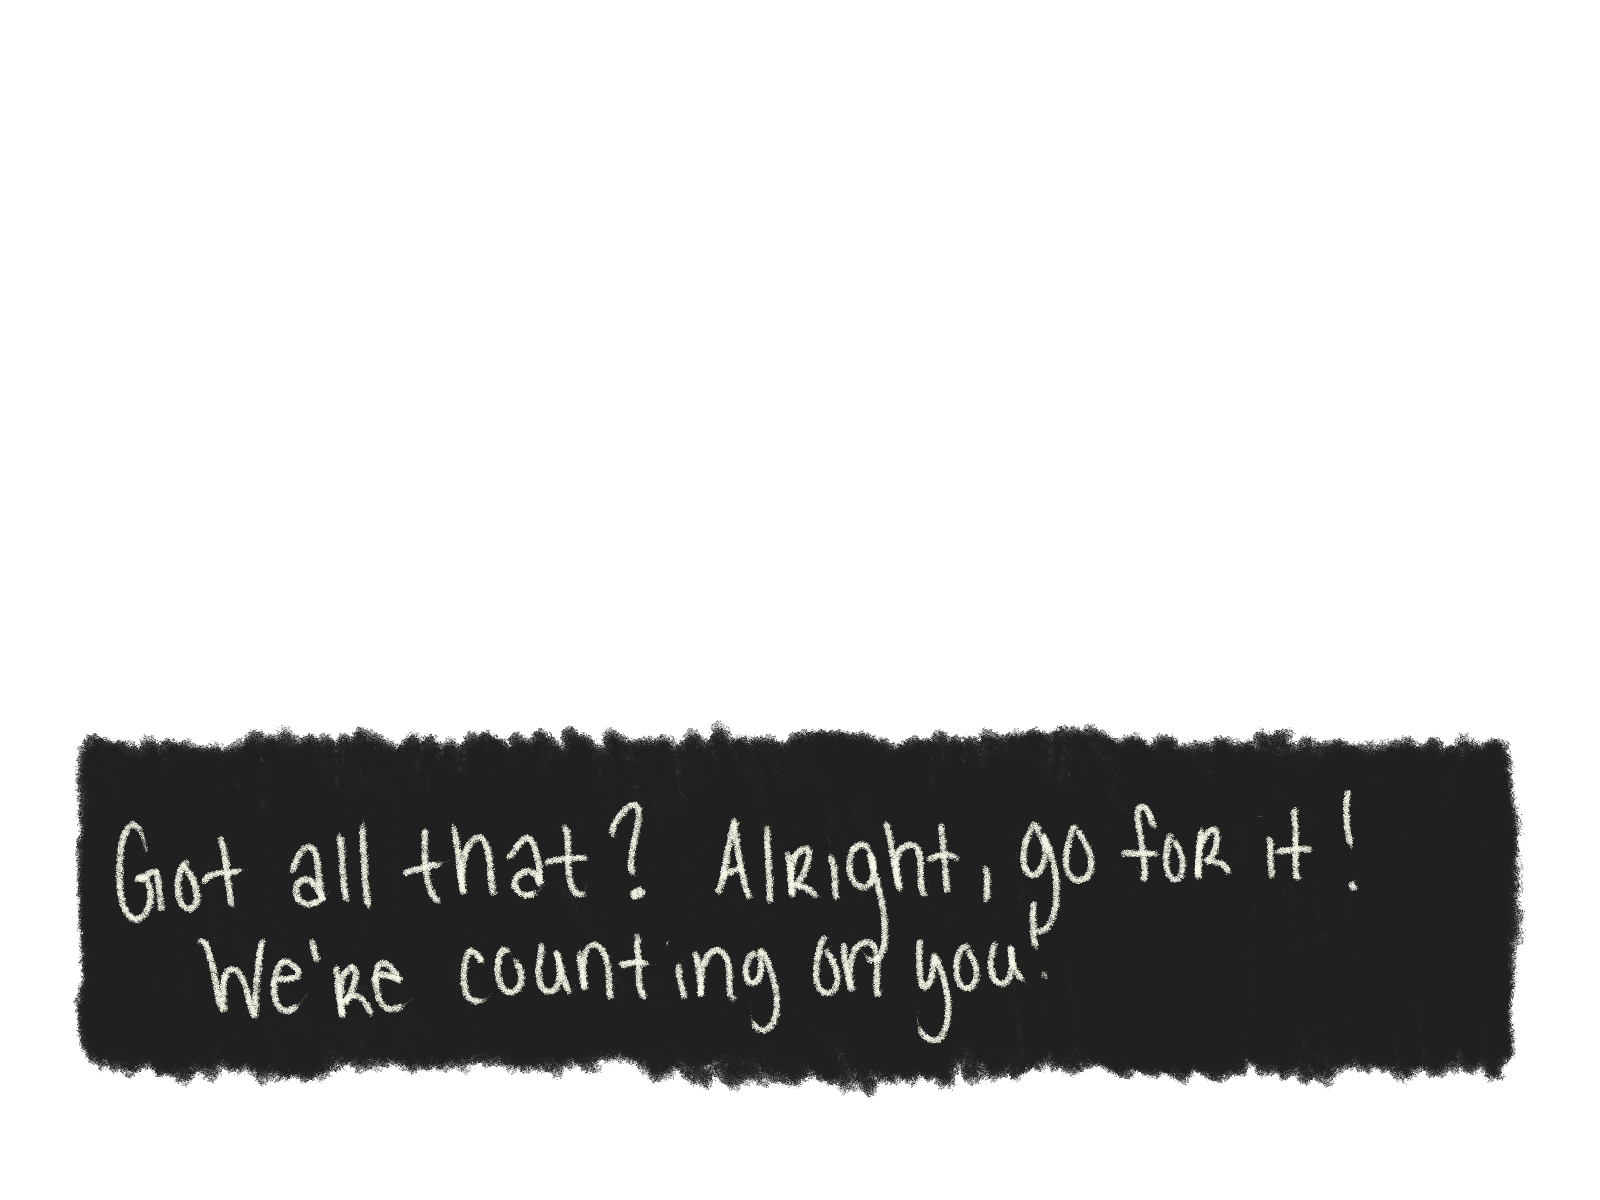 Got all that? Alright, go for it!
We're counting on you!